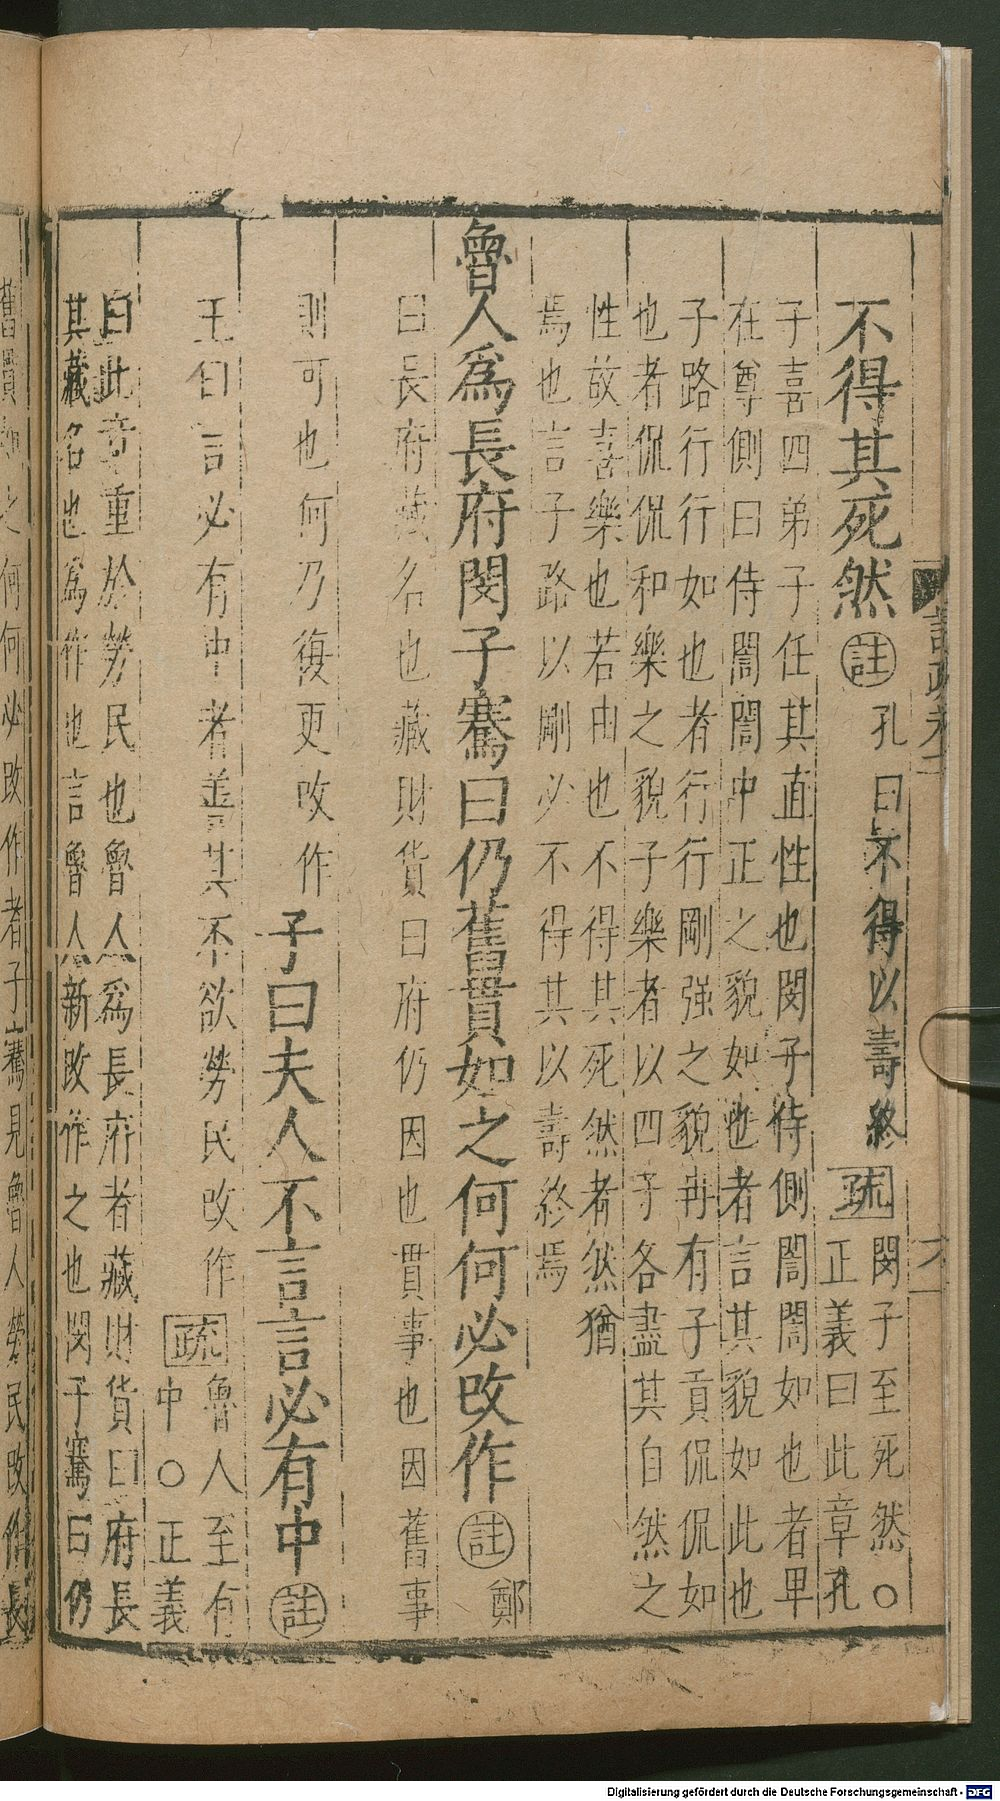 不得其死然註孔曰不得以壽終疏閔子至死然○
正義曰此章孔
子喜四弟子任其直性也閔子侍側誾誾如也者卑
在尊側曰侍誾誾中正之貌如也者言其貌如此也
子路行行如也者行行剛强之貌冉有子貢侃侃如
也者侃侃和樂之貌子樂者以四子各盡其自然之
性故喜樂也若由也不得其死然者然猶
焉也言子路以剛必不得其以壽終焉
魯人爲長府閔子騫曰仍舊貫如之何何必改作註鄭
曰長府藏名也藏財貨曰府仍因也貫事也因舊事
則可也何乃復更改作子曰夫人不言言必有中註
王曰言必有中者善其不欲勞民改作疏魯人至有
中○正義
曰此章重於勞民也魯人爲長府者藏財貨曰府長
其藏名也爲作也言魯人新改作之也閔子騫曰仍
舊貫如之何何必改作者子騫見魯人勞民改作長
Digitalisierung gefördert durch die Deutsche Forschungsgemeinschaft - DFG